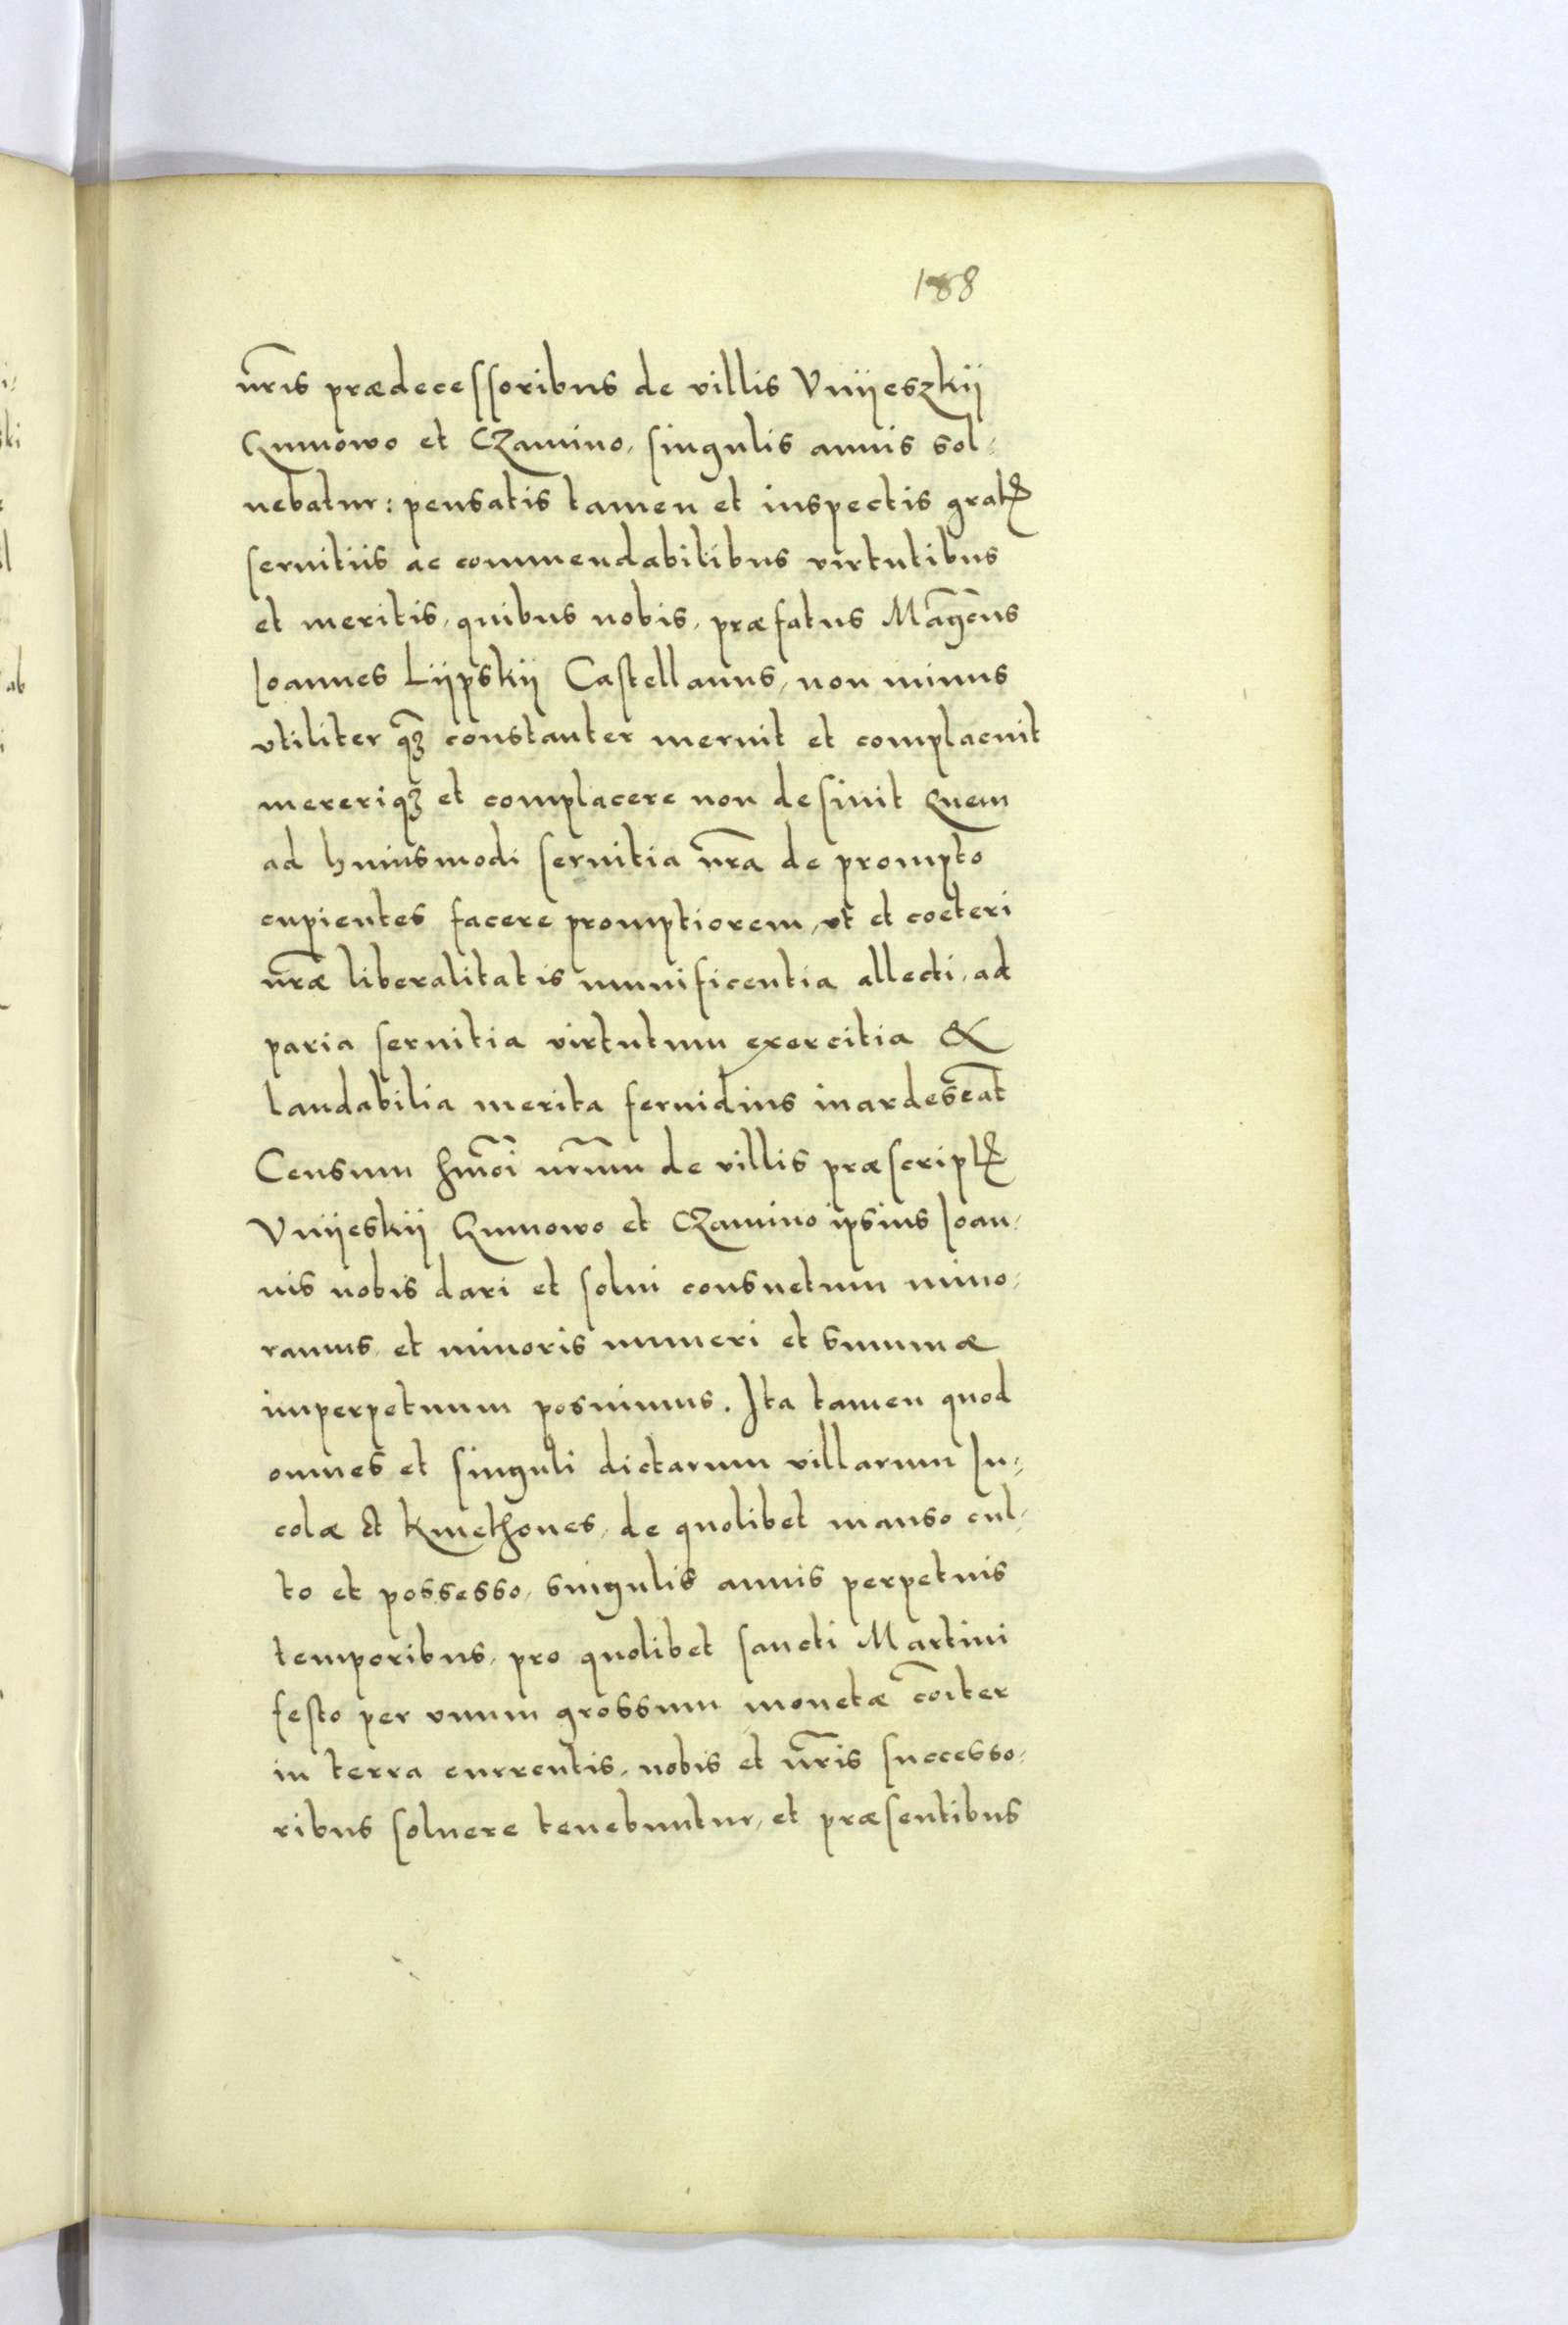 188
nr̃is prædecessoribus de villis Vnijeszkij
Gumowo et CZamino, singulis annis sol-
uebatur: pensatis tamen et inspectis gratꝭ
seruitiis ac commendabilibus virtutibus
et meritis, quibus nobis, præfatus Mag̃cus
Joannes Lijpskij Castellanus, non minus
vtiliter qꝫ̃ constanter meruit et complacuit
mereriqꝫ et complacere non desinit Quem
ad huiusmodi seruitia nr̃a de prompto
cupientes facere promptiorem, vt et coeteri
nr̃æ liberalitatis munificentia allecti, ad
paria seruitia virtutum exercitia &
laudabilia merita feruidius inardescãt
Censum hmõi nr̃um de villis præscriptꝭ
Vnijeskij Gumowo et CZamino ipsius Joan-
nis nobis dari et solui consuetum mino-
ramus, et minoris numeri et summæ
imperpetuum posuimus. Ita tamen quod
omnes et singuli dictarum villarum In-
colæ et kmethones, de quolibet manso cul-
to et possesso, singulis annis perpetuis
temporibus, pro quolibet sancti Martini
festo per vnum grossum monetæ cõiter
in terra currentis, nobis et nr̃is successo-
ribus soluere tenebuntur, et præsentibus